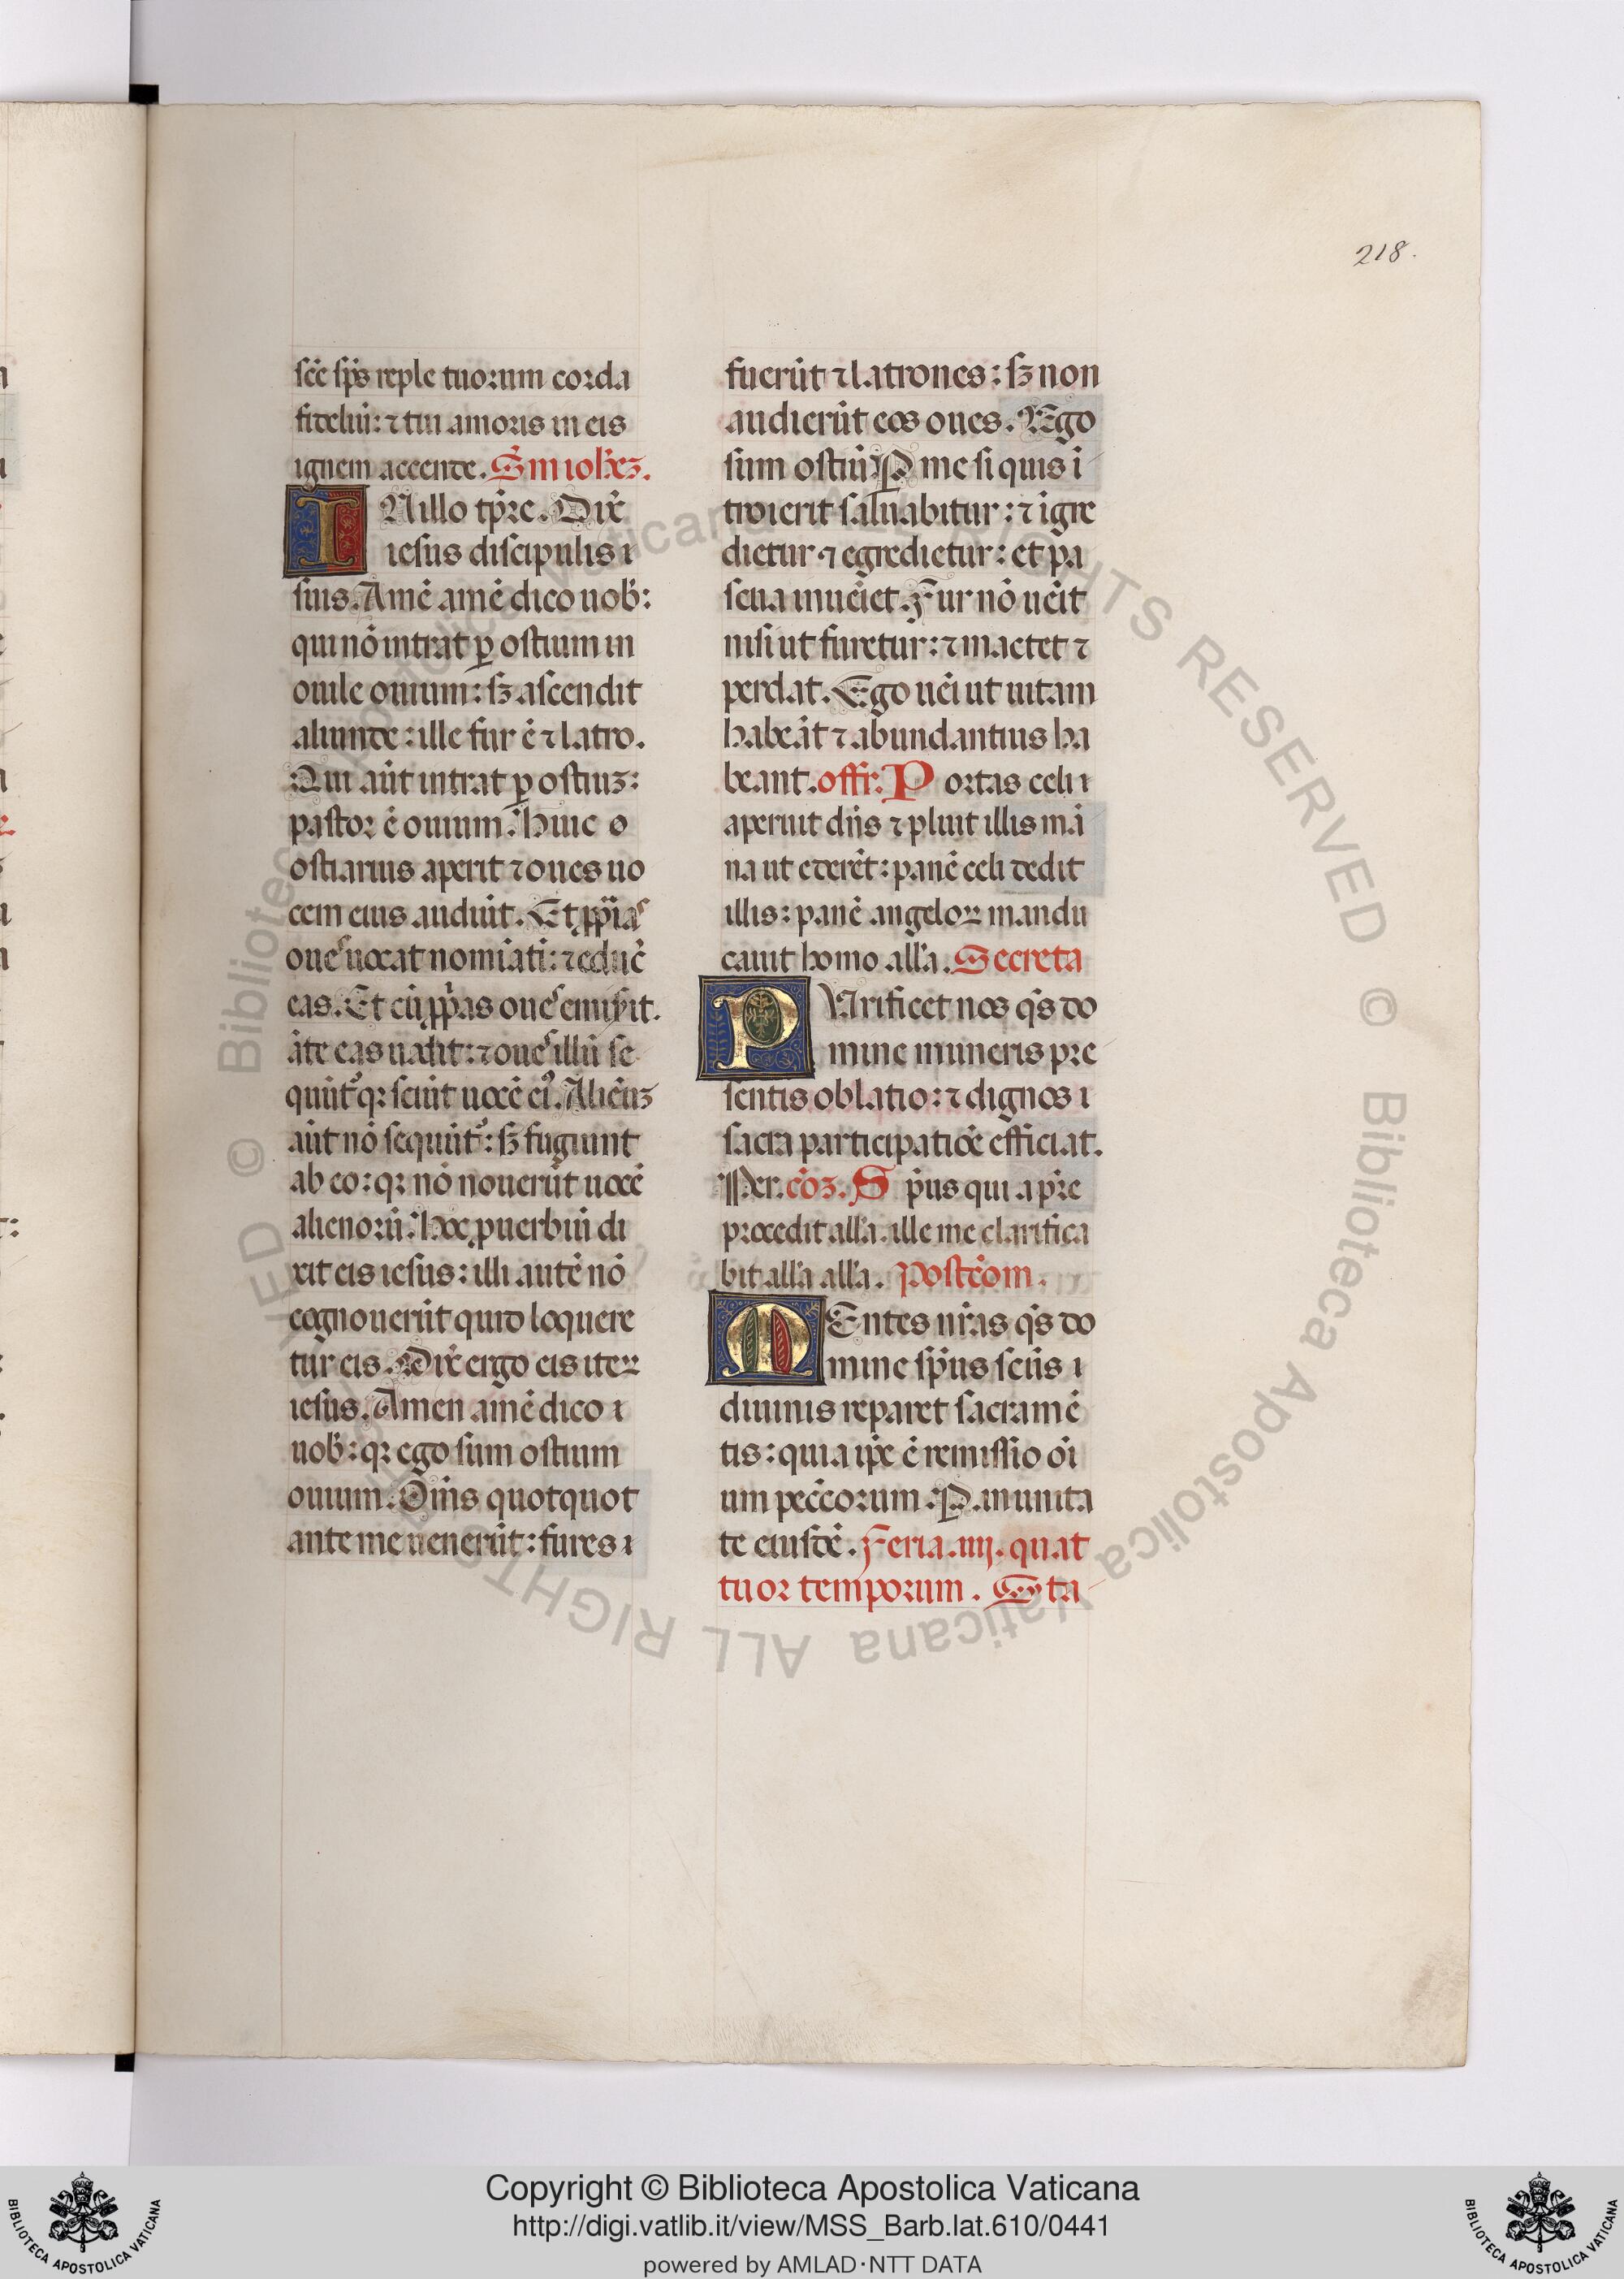 218.
sc̄e sp̄s reple tuorum corda
fideliū: ⁊ tui amoris in eis
ignem accende. S̄m ioh̄eꝫ.
IN illo tp̄re. Dix̄
iesus discipulis ı
suis. Amē amē dico uob̄:
qui nō intrat ꝑ ostium in
ouile ouium: sꝫ ascendit
aliunde: ille fur ē ⁊ latro.
Qui aūt intrat ꝑ ostiuꝫ:
pastor ē ouium. Huic o
ostiarius aperit ⁊ oues uo
cem eius audiūt. Et ꝓp̄ias
oues uocat nomīatī: ⁊ educ̄
eas. Et cū ꝓp̄as oues emisit.
āte eas uadit: ⁊ oues illū se
quūtᷣ qꝛ sciūt uocē eiꝰ. Aliēuꝫ
aūt nō sequūtᷣ: sꝫ fugiunt
ab eo: qꝛ nō nouerūt uocē
alienorū. Hoc ꝓuerbiū di
xit eis iesus: illi autē nō
cognouerūt quid loquere
tur eis. Dix̄ ergo eis iteꝝ
iesus. Amen amē dico ı
uob̄: qꝛ ego sum ostium
ouium. Om̄s quotquot
ante me uenerūt: fures ı
fuerūt ⁊ latrones: sꝫ non
audierūt eos oues. Ego
sum ostiū. P me si quis ī
troierit saluabitur: ⁊ īgre
dietur ⁊ egredietur: et pa
scua inuēiet. Fur nō uēit
nisi ut furetur: ⁊ mactet ⁊
perdat. Ego uēi ut uitam
habeāt ⁊ abundantius ha
beant. offr. Portas celi ı
aperuit dn̄s ⁊ pluit illis mā
na ut ederēt: panē celi dedit
illis: panē angeloꝝ mandu
cauit homo all̄a. Secreta
PUrificet nos q̄s do
mine muneris pre
sentis oblatio: ⁊ dignos ı
sacra participatiōe efficiat.
Per. cōꝫ. Sp̄us qui a pr̄e
procedit all̄a. ille me clarifica
bit all̄a all̄a. Postcōm.
MEntes nr̄as q̄s do
mine sp̄us sc̄us ı
diuinis reparet sacramē
tis: quia ip̄e ē remissio oī
um pecc̄orum. P. in unita
te eiusdē. Feria .iiij. quat
tuor temporum. Sta
Copyright © Biblioteca Apostolica Vaticana
http://digi.vatlib.it/view/MSS_Barb.lat.610/0441
powered by AMLAD·NTT DATA
BIBLIOTECA APOSTOLICA VATICANA
BIBLIOTECA APOSTOLICA VATICANA